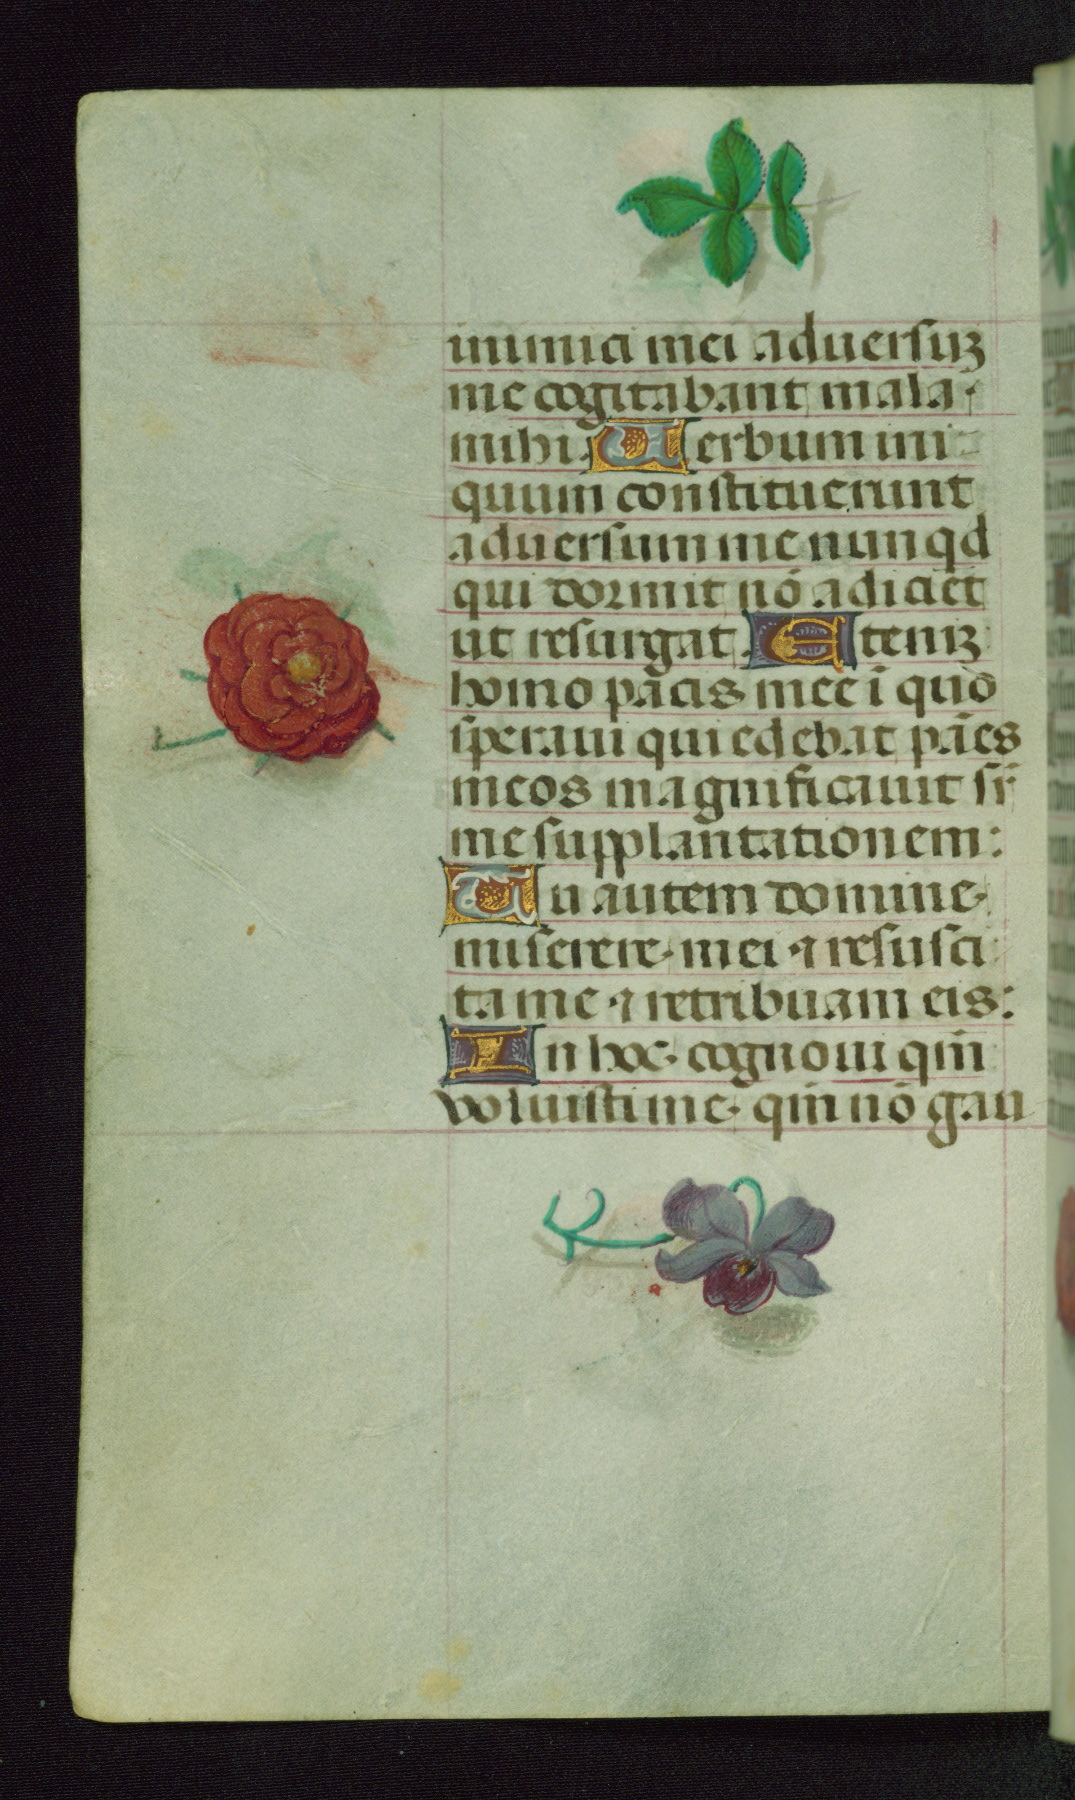 inimici mei aduersuʒ
me cogitabant mala
mihi. Uerbum ini
quum constituerunt
aduersum me nunqd
qui dormit nō adiciet
ut resurgat. Eteniʒ
homo pacis mee ī quo
speraui qui edebat pāes
meos magnificauit sr̄
me supplantationem:
Tu autem domine
miserere mei ⁊ resusci
ta me ⁊ retribuam eis:
In hoc cognoui qm̄
voluisti me. qm̄ nō gau